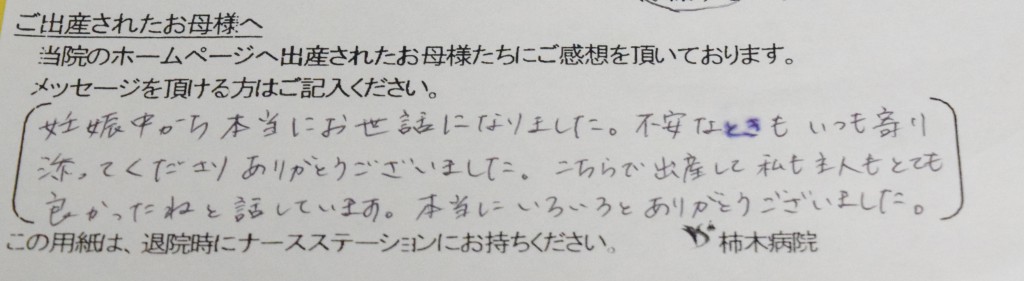 ご出産されたお母様へ
当院のホームページへ出産されたお母様たちにご感想を頂いております。
メッセージを頂ける方はご記入ください。
妊娠中から本当にお世話になりました。不安なときもいつも寄り
添ってくださりありがとうございました。こちらで出産して私も主人もとても
良かったねと話しています。本当にいろいろとありがとうございました。
この用紙は、退院時にナースステーションにお持ちください。 柿木病院